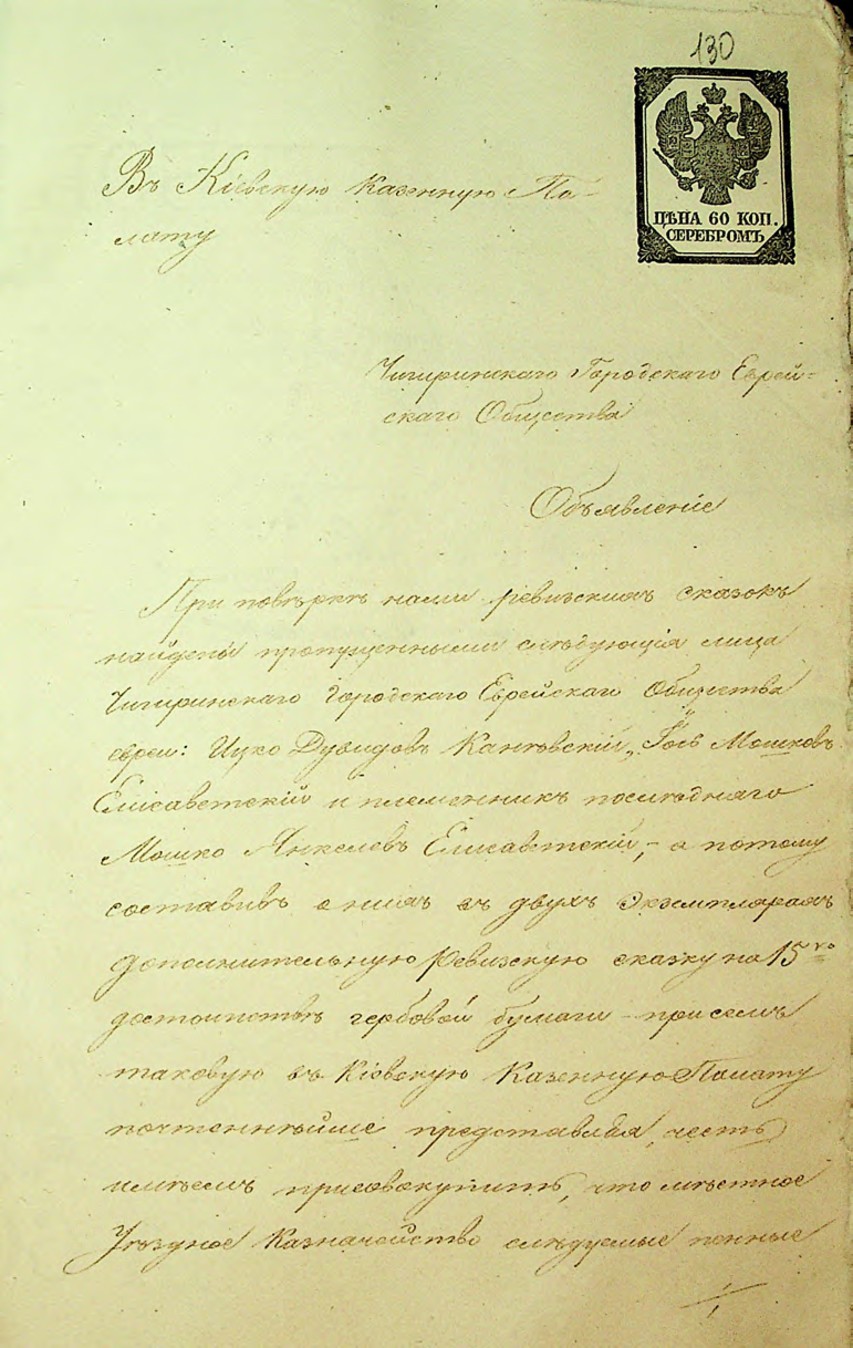 130
ЦѢНА 60 КОП.
СЕРЕБРОМЪ
Въ Кіевскую Казенную Па-
лату
Чигиринскаго Городскаго Еврей=
скаго Общества
Объявленіе
При повѣркѣ нами ревизскихъ сказокъ
найдены пропущенными слѣдующія лица
Чигиринскаго Городскаго Еврейскаго Общества
евреи: Ицко Дувидовъ Каневскій, Мошковъ
Елисаветскій и племенникъ послѣдняго
Мошко Янкелевъ Елисаветскій, – а потому
составивъ о нихъ въ двухъ экземплярахъ
дополнительную Ревизскую сказку на 15го
достоинствѣ гербовой бумаги – при семъ
таковую въ Кіевскую Казенную Палату
почтеннѣйше представляя, честь
имѣемъ присовокупить, что мѣстное
Уѣздное Казначейство слѣдуемые пенные